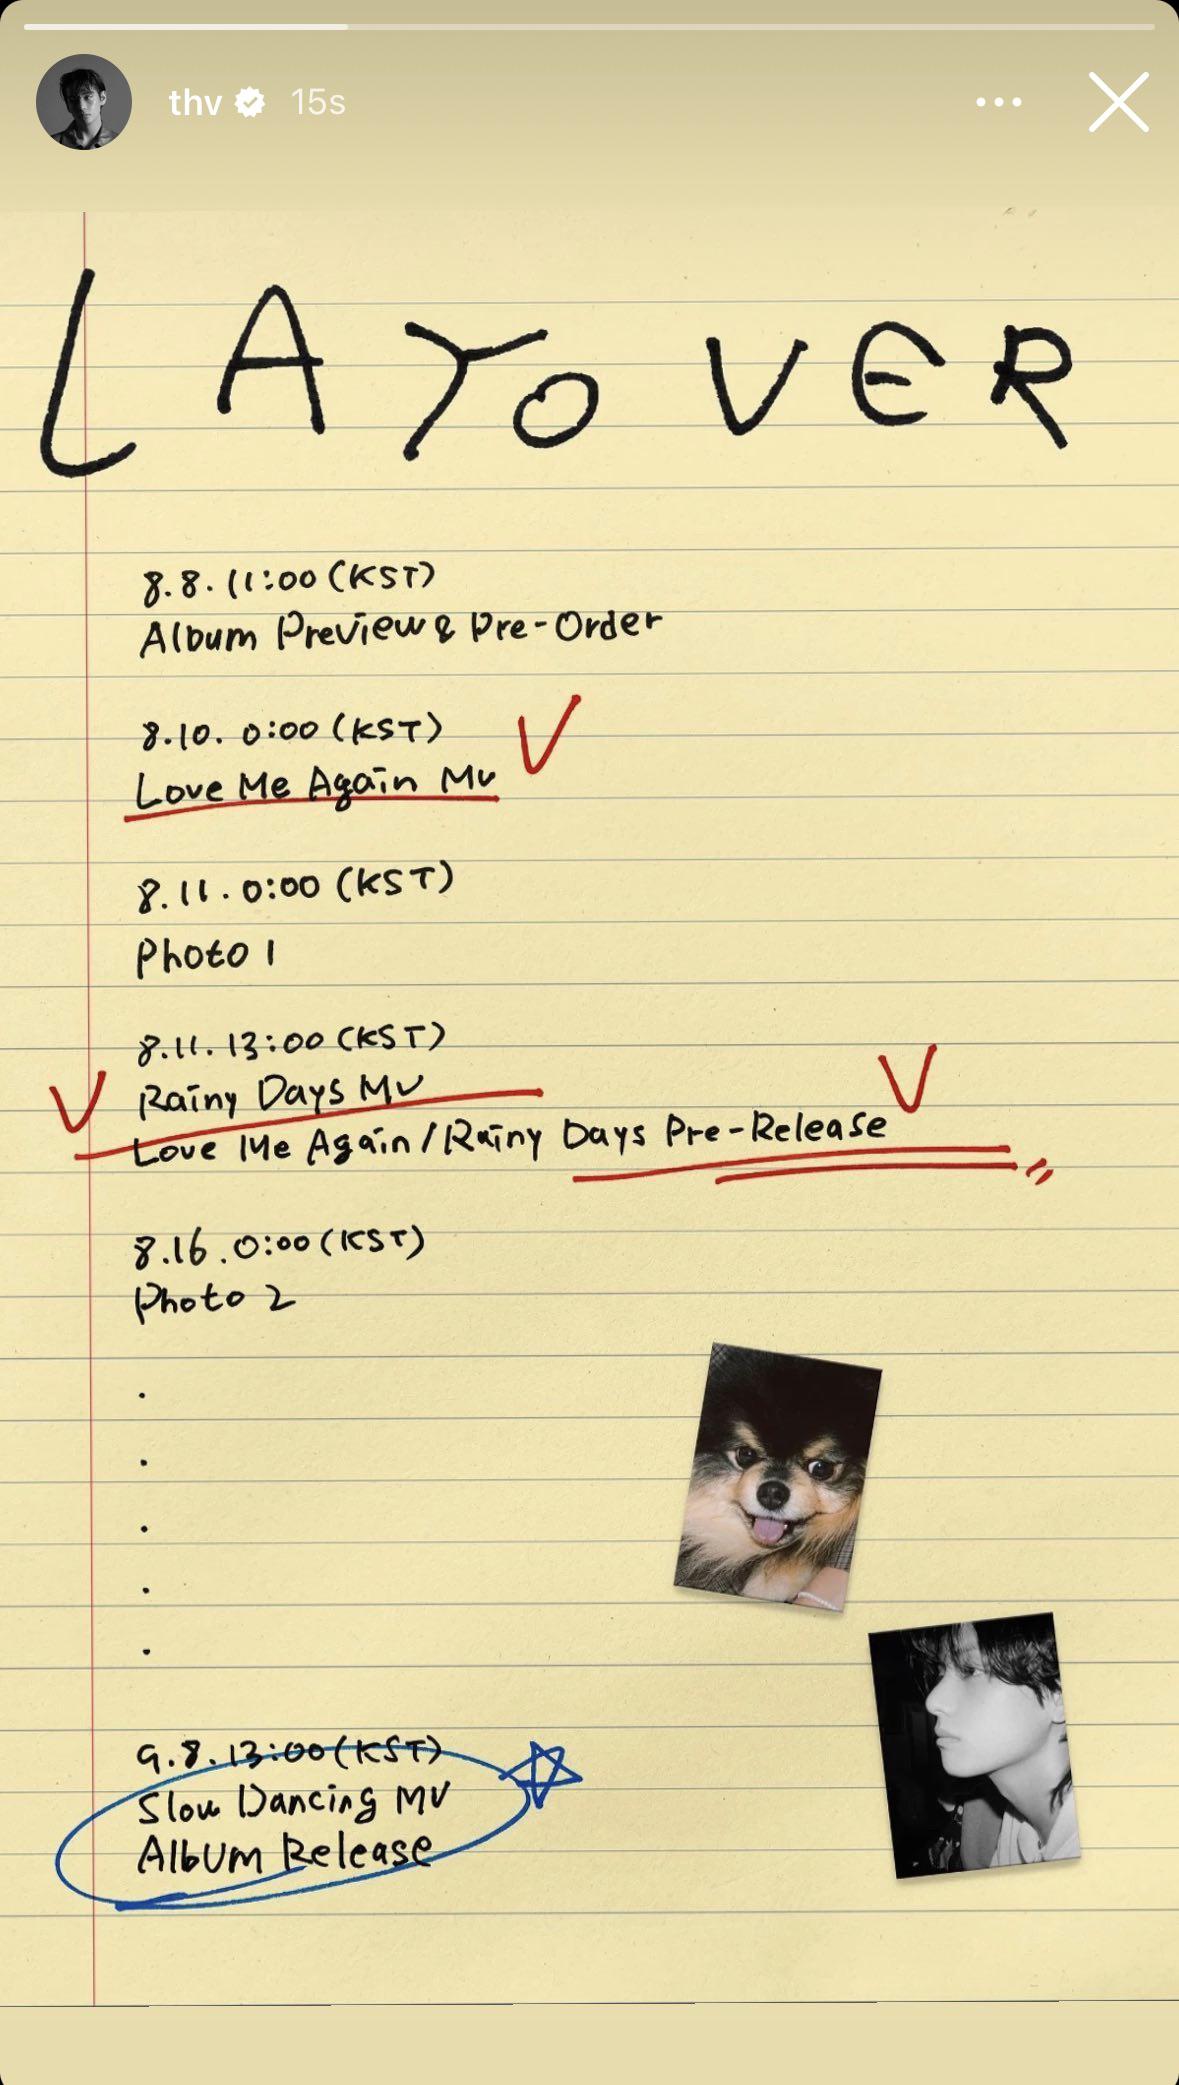 thv 15s
LAYOVER
8.8. 11:00 (KST)
Album Preview & Pre-Order
8.10. 0:00 (KST)
Love Me Again MV
8.11. 0:00 (KST)
Photo 1
8.11. 13:00 (KST)
Rainy Days MV
Love Me Again/Rainy Days Pre-Release
8.16. 0:00 (KST)
Photo 2
.
.
.
.
.
9.8. 13:00 (KST)
Slow Dancing MV
Album Release